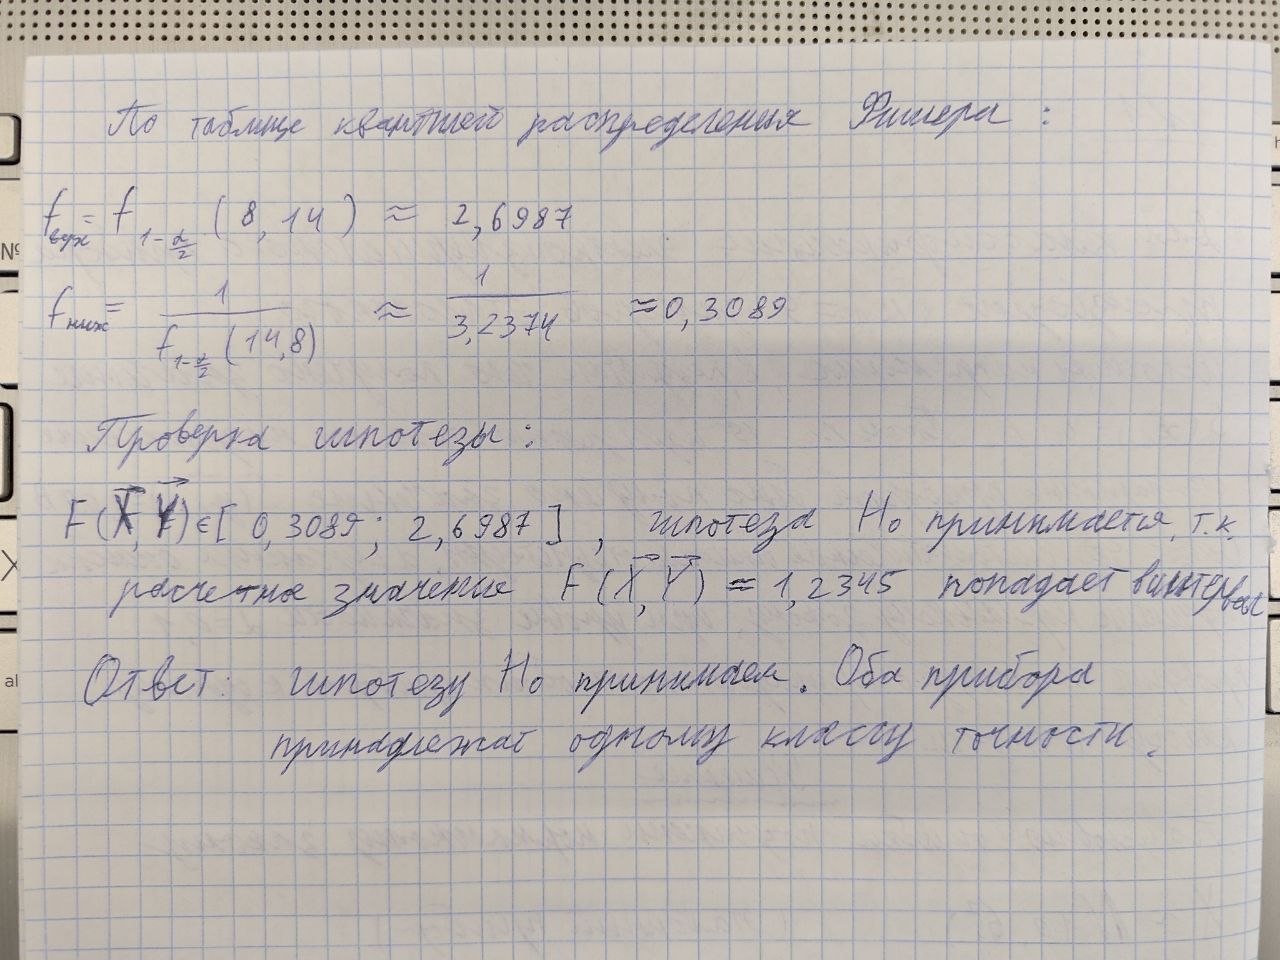 По таблице квантилей распределения Фишера :
f верх = f 1-α/2 ( 8, 14 ) ≈ 2,6987
f ниж = 1 / f 1-α/2 (14,8) ≈ 1 / 3,2374 ≈ 0,3089
Проверка гипотезы :
F(X, Y) ∈ [ 0,3089 ; 2,6987 ] , гипотеза H₀ принимается, т.к.
расчетное значение F (X, Y) ≈ 1,2345 попадает в интервал
Ответ: гипотезу H₀ принимаем. Оба прибора
принадлежат одному классу точности.